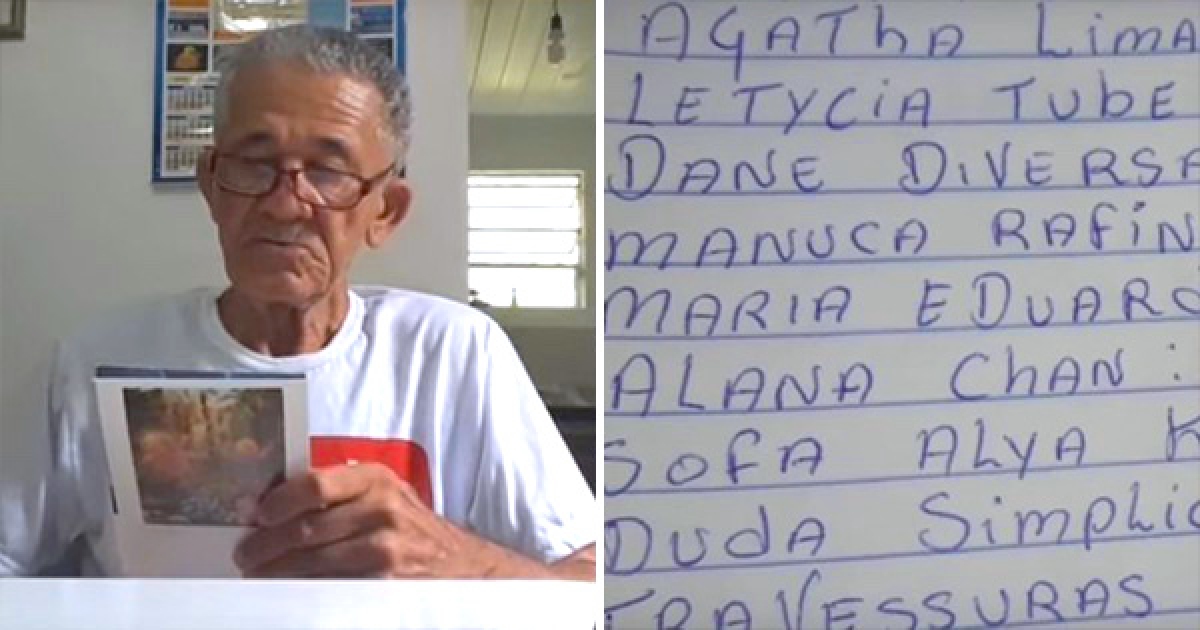 AGATHA LIMA
LETYCIA TUBE
DANE DIVERSA
MANUCA RAFIN
MARIA EDUARD
ALANA CHAN:
SOFA ALYA K
DUDA SIMPLIC
TRAVESSURAS